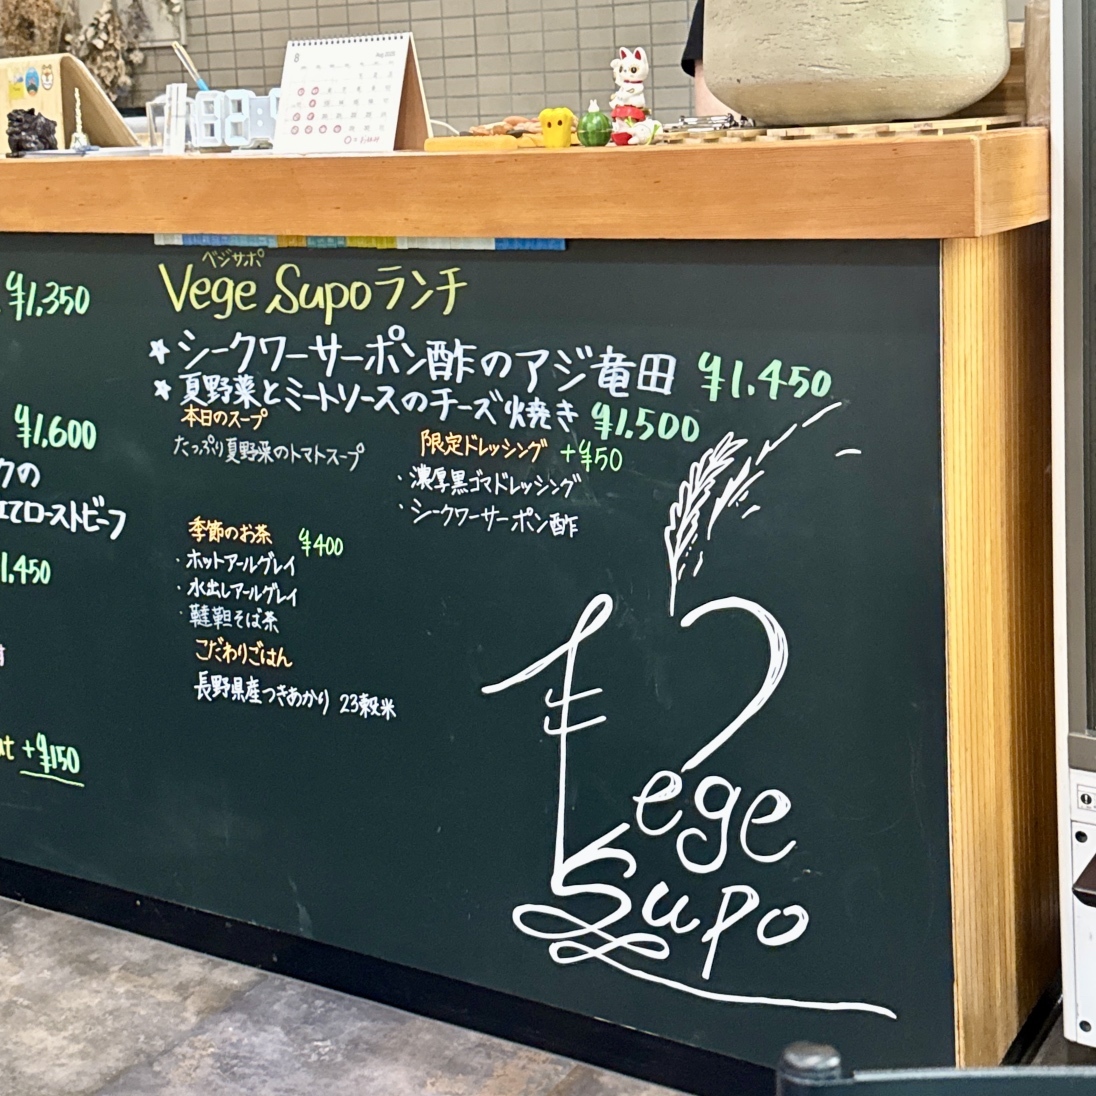 8
Aug 2025
¥1,350
¥1,600
クの
ローストビーフ
1,450
+¥150
ベジサポ
Vege Supoランチ
☆ シークワーサーポン酢のアジ竜田 ¥1,450
☆ 夏野菜とミートソースのチーズ焼き ¥1,500
本日のスープ
たっぷり夏野菜のトマトスープ
限定ドレッシング +¥50
・濃厚黒ゴマドレッシング
・シークワーサーポン酢
季節のお茶 ¥400
・ホットアールグレイ
・水出しアールグレイ
・韃靼そば茶
こだわりごはん
長野県産つきあかり 23穀米
Vege
Supo